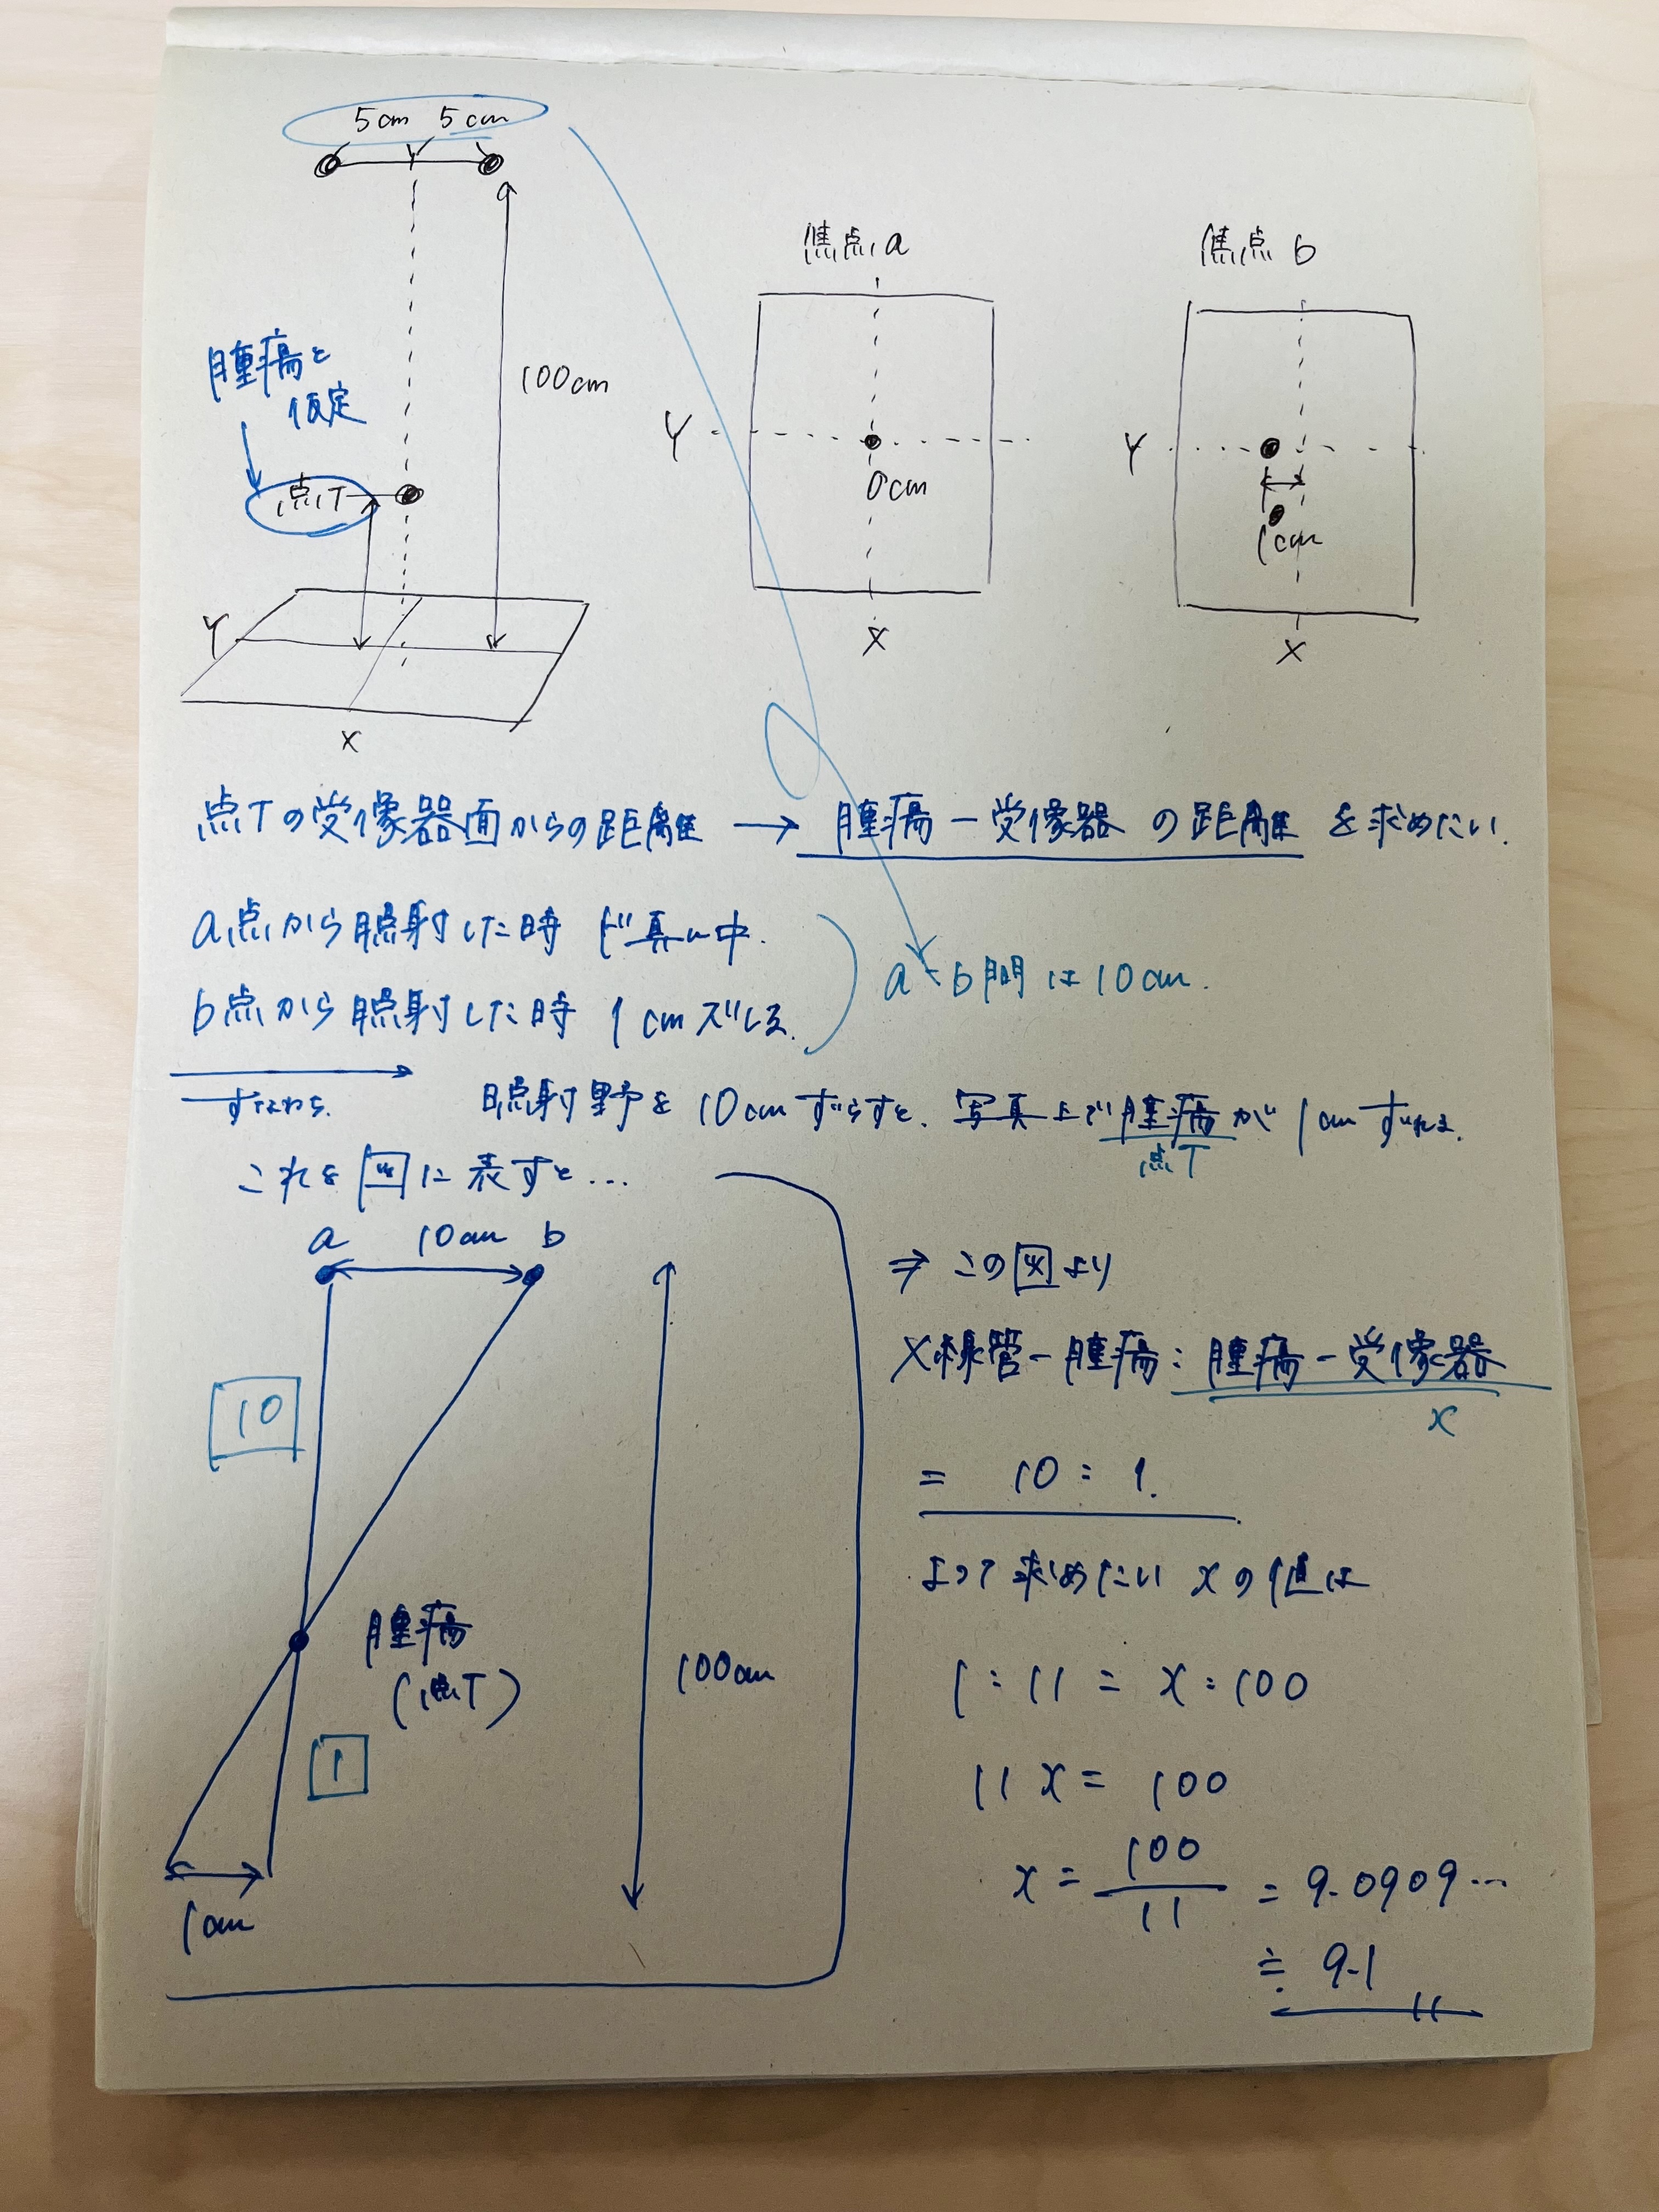 5cm 5cm
焦点a
焦点b
100cm
腫瘍と
仮定
点T
Y
X
Y
0cm
X
Y
1cm
X
点Tの受像器面からの距離 → 腫瘍-受像器 の距離 を求めたい.
a点から照射した時 ド真ん中.
b点から照射した時 1cmズレる.
a-b間は10cm.
すなわち.
照射野を10cmずらすと、写真上で腫瘍が1cmずれる.
点T
これを図に表すと…
a 10cm b
10
腫瘍
(点T)
100cm
1
1cm
⇒ この図より
X線管-腫瘍:腫瘍-受像器
x
= 10:1.
よって求めたいxの値は
1:11 = x:100
11x = 100
x = 100/11 = 9.0909…
≒ 9.1